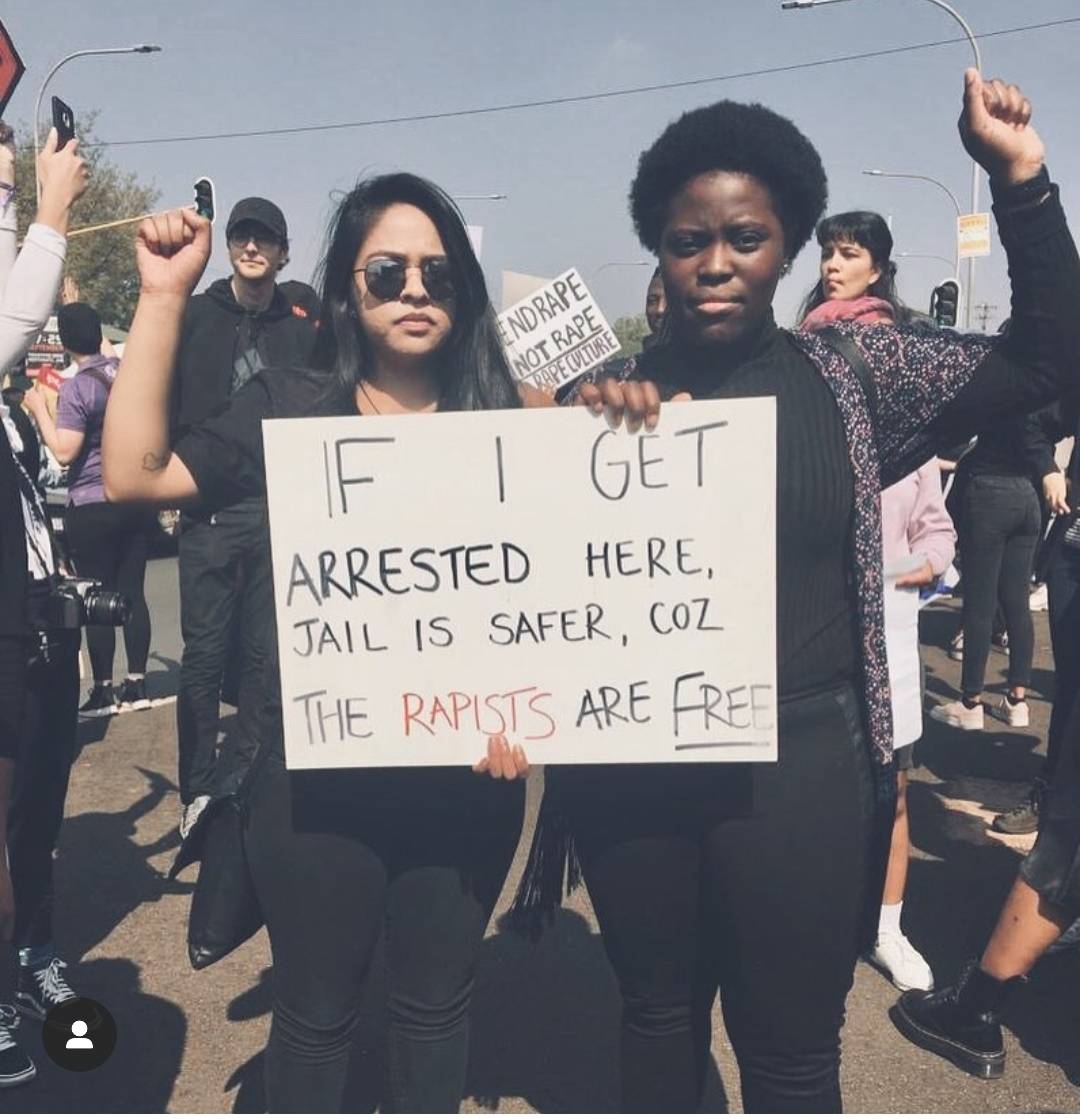 END RAPE
NOT RAPE
RAPE CULTURE
IF I GET
ARRESTED HERE,
JAIL IS SAFER, COZ
THE RAPISTS ARE FREE